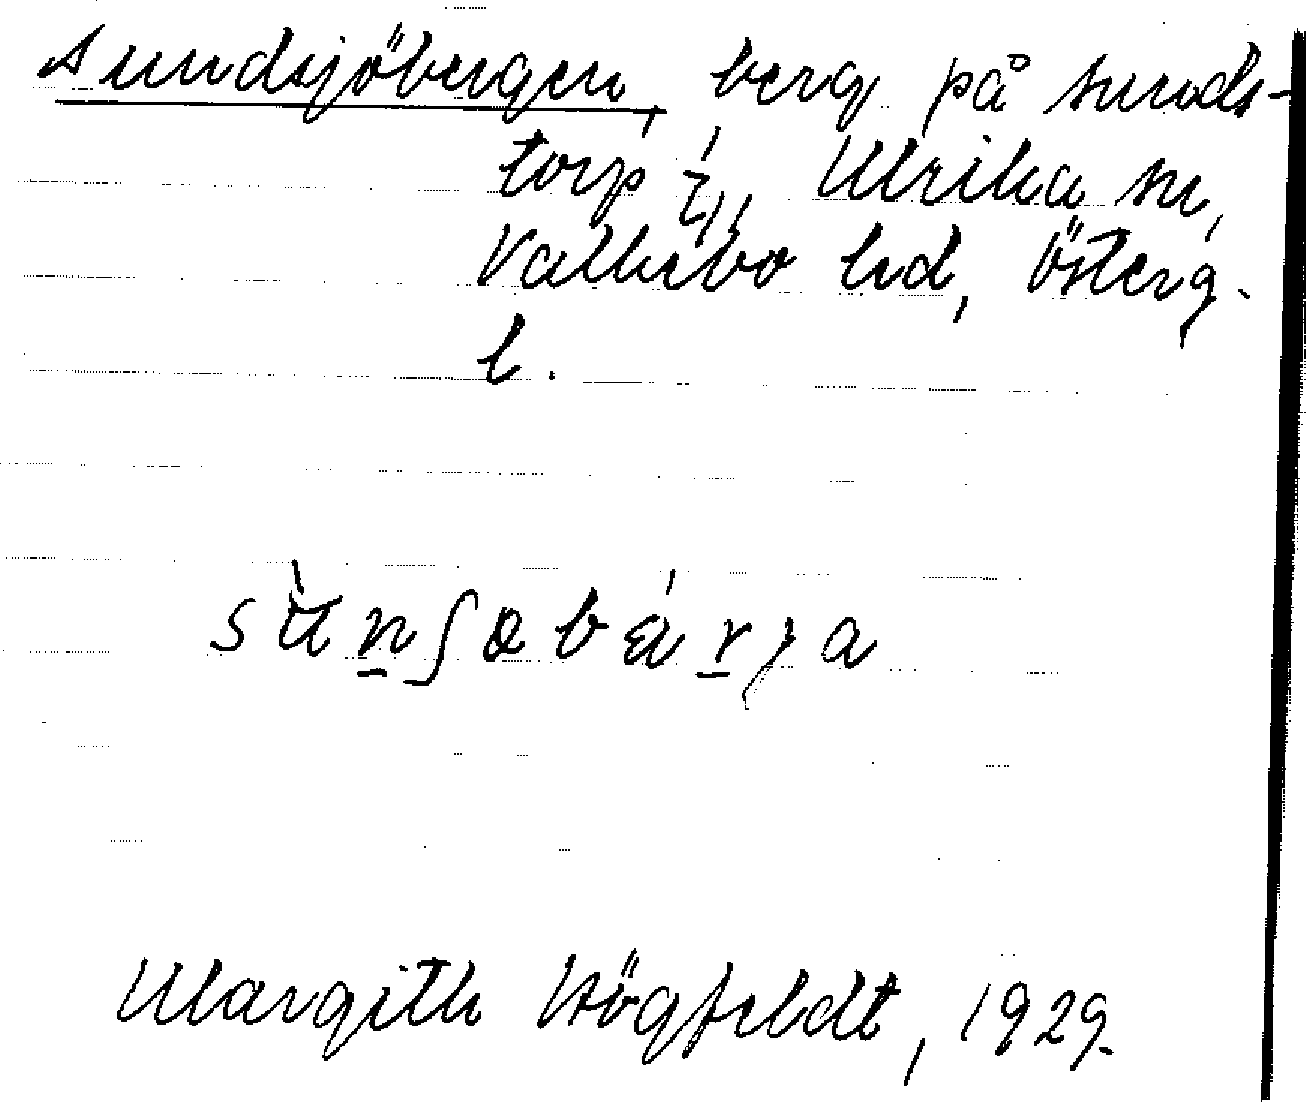 Sundsjöbergen, berg på Sunds-
torp 1/2, Ulrika sn,
Valkebo hd, Österg.
l.
sùnʃøbǽrja
Margith Högfeldt, 1929.